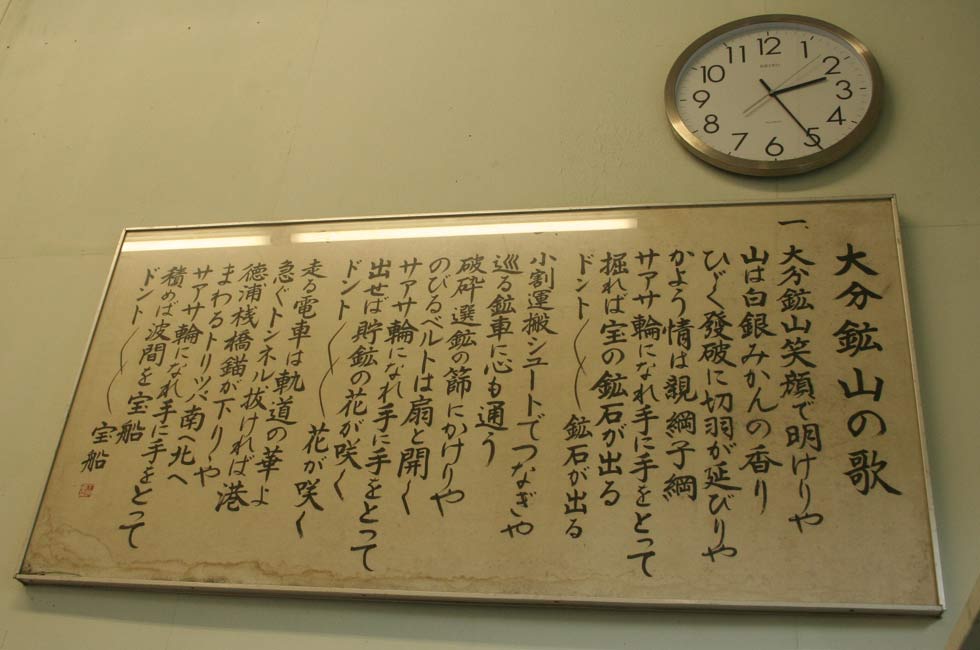 大分鉱山の歌
一、大分鉱山笑顔で明けりや
山は白銀みかんの香り
ひゞく發破に切羽が延びりや
かよう情は親綱子綱
サアサ輪になれ手に手をとって
掘れば宝の鉱石が出る
ドント〱 鉱石が出る
小割運搬シュートでつなぎや
巡る鉱車に心も通う
破砕選鉱の篩にかけりや
のびるベルトは扇と開く
サアサ輪になれ手に手をとって
出せば貯鉱の花が咲く
ドント〱 花が咲く
走る電車は軌道の華よ
急ぐトンネル抜ければ港
徳浦桟橋錨が下りりや
まわるトリッパ南へ北へ
サアサ輪になれ手に手をとって
積めば波間を宝船
ドント〱 宝船
12
1
2
3
4
5
6
7
8
9
10
11
SEIKO